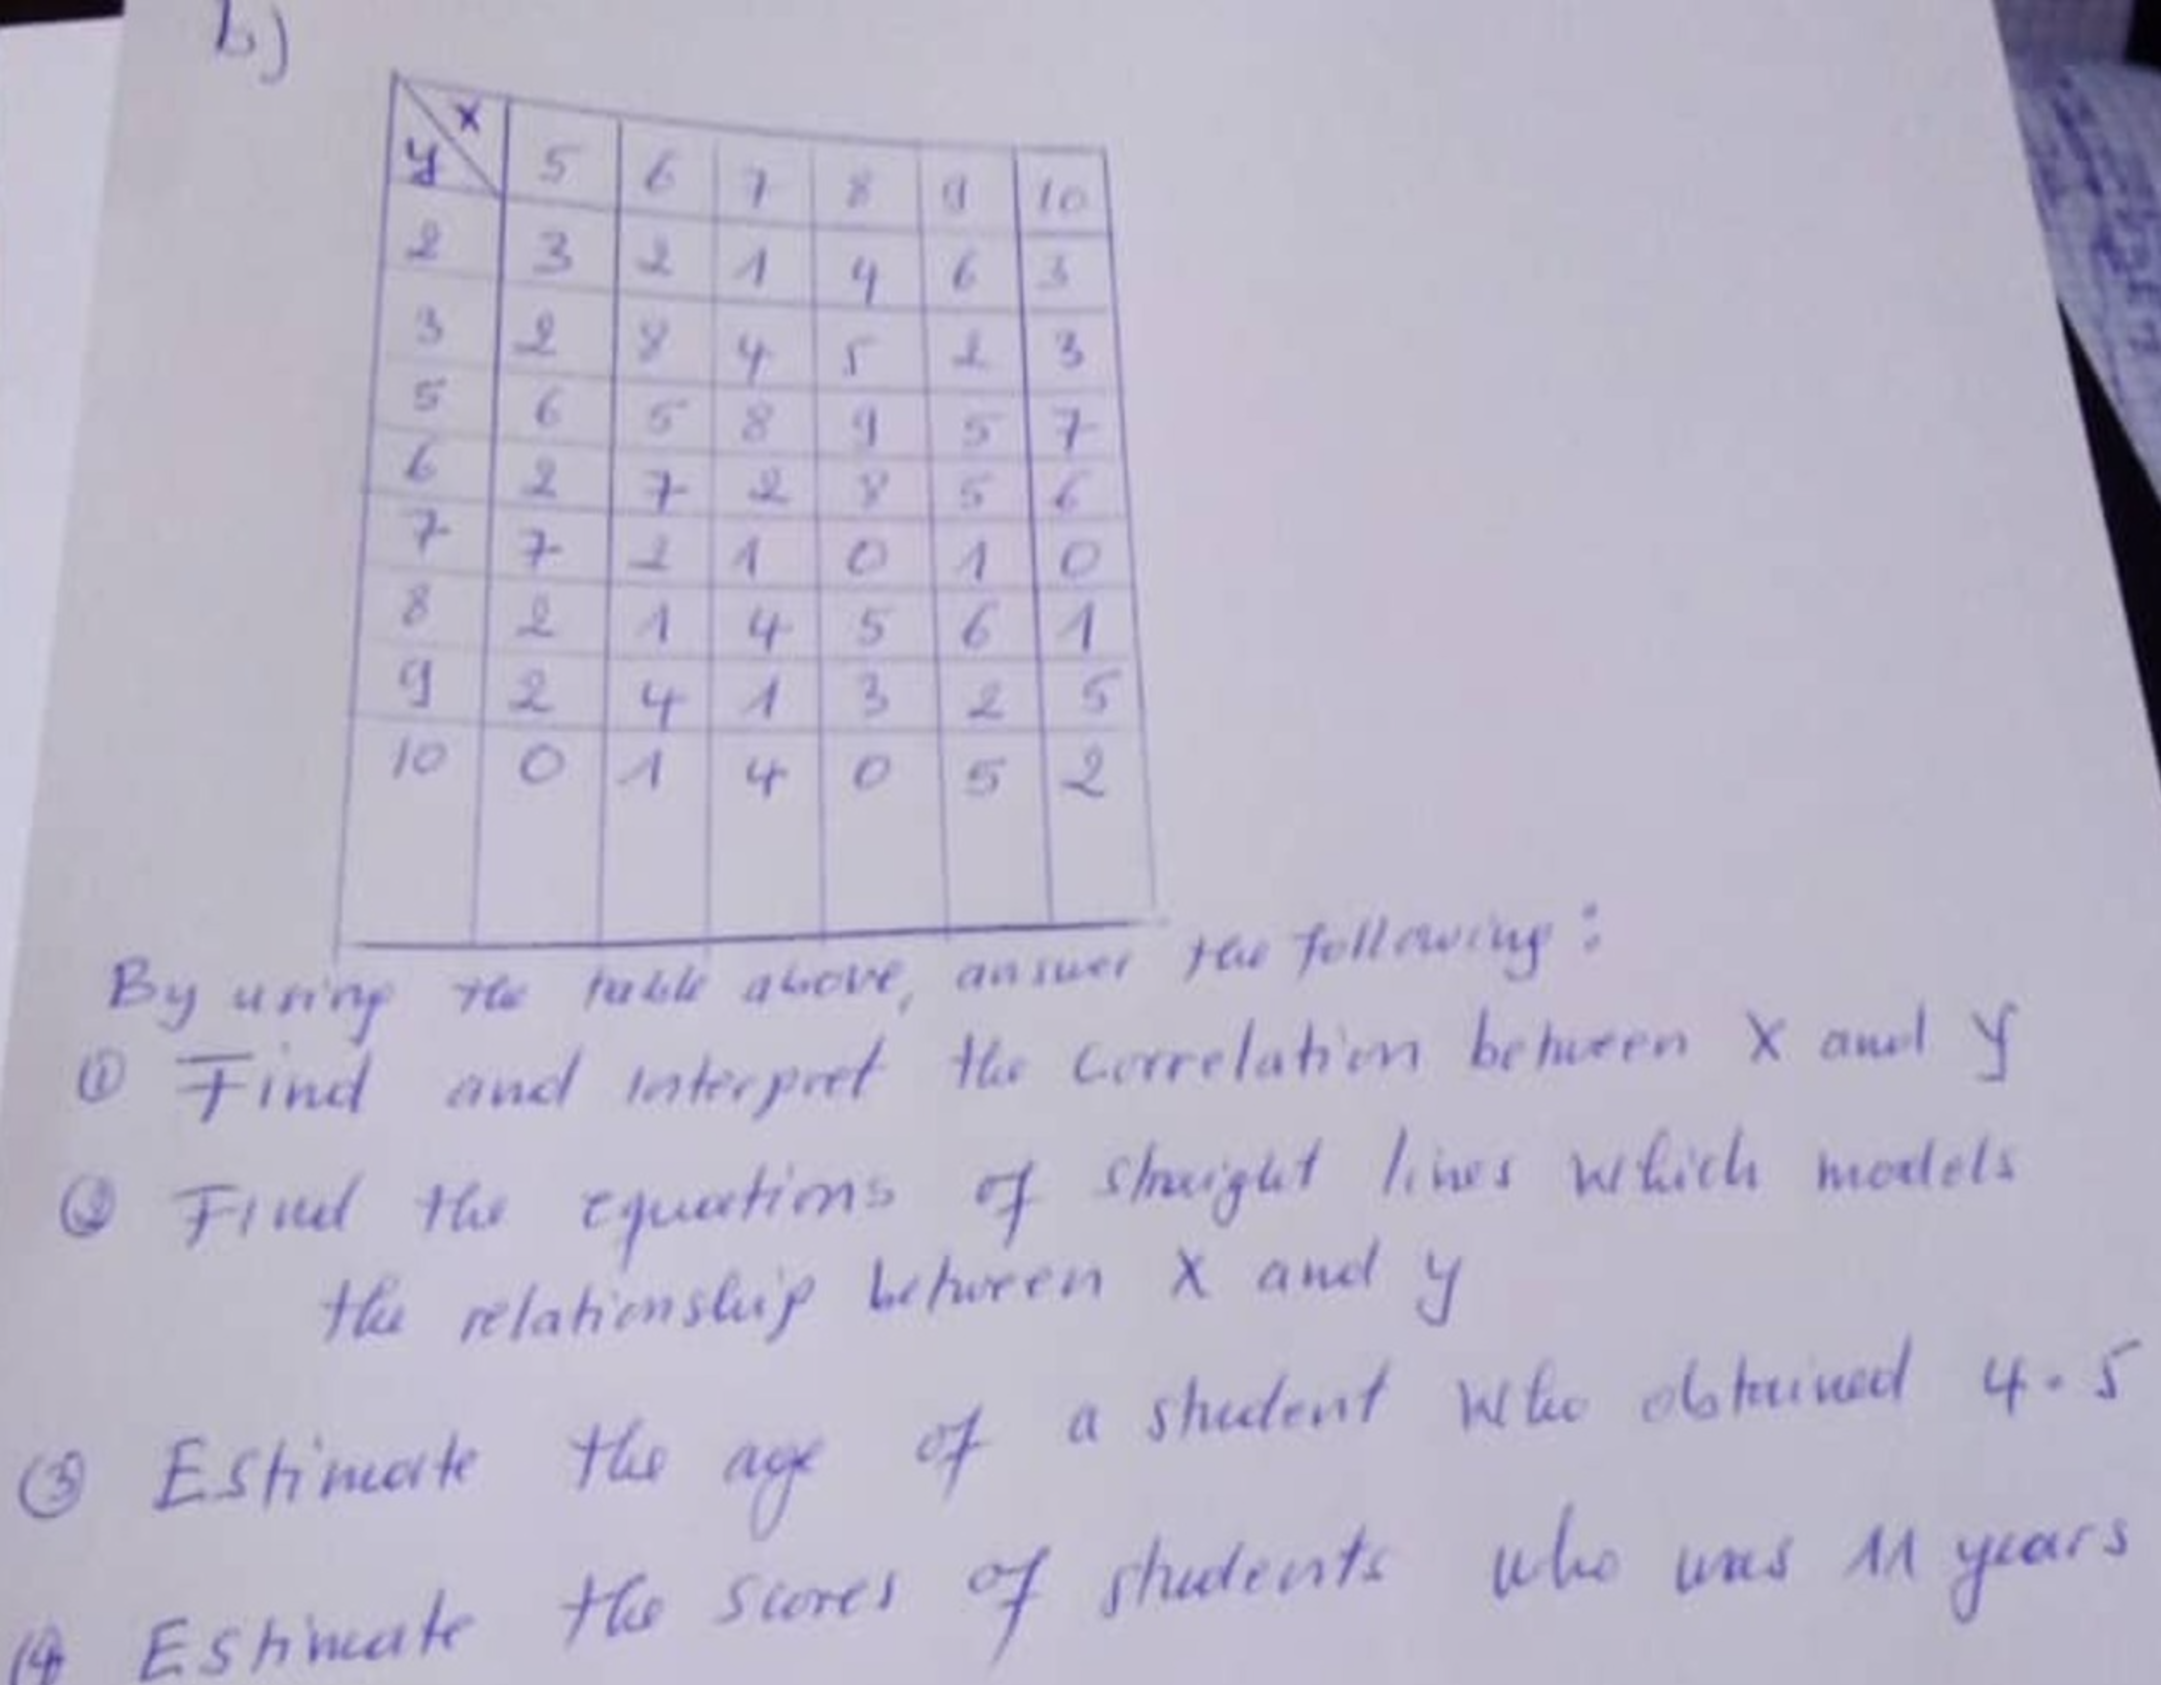 b)
y x 5 6 7 8 9 10
2 3 2 1 4 6 3
3 2 8 4 5 2 3
5 6 5 8 9 5 7
6 2 7 2 8 5 6
7 7 2 1 0 1 0
8 2 1 4 5 6 1
9 2 4 1 3 2 5
10 0 1 4 0 5 2
By using the table above, answer the following:
① Find and interpret the correlation between X and Y
② Find the equations of straight lines which models
the relationship between X and y
(3) Estimate the age of a student who obtained 4.5
(4) Estimate the scores of students who was 11 years